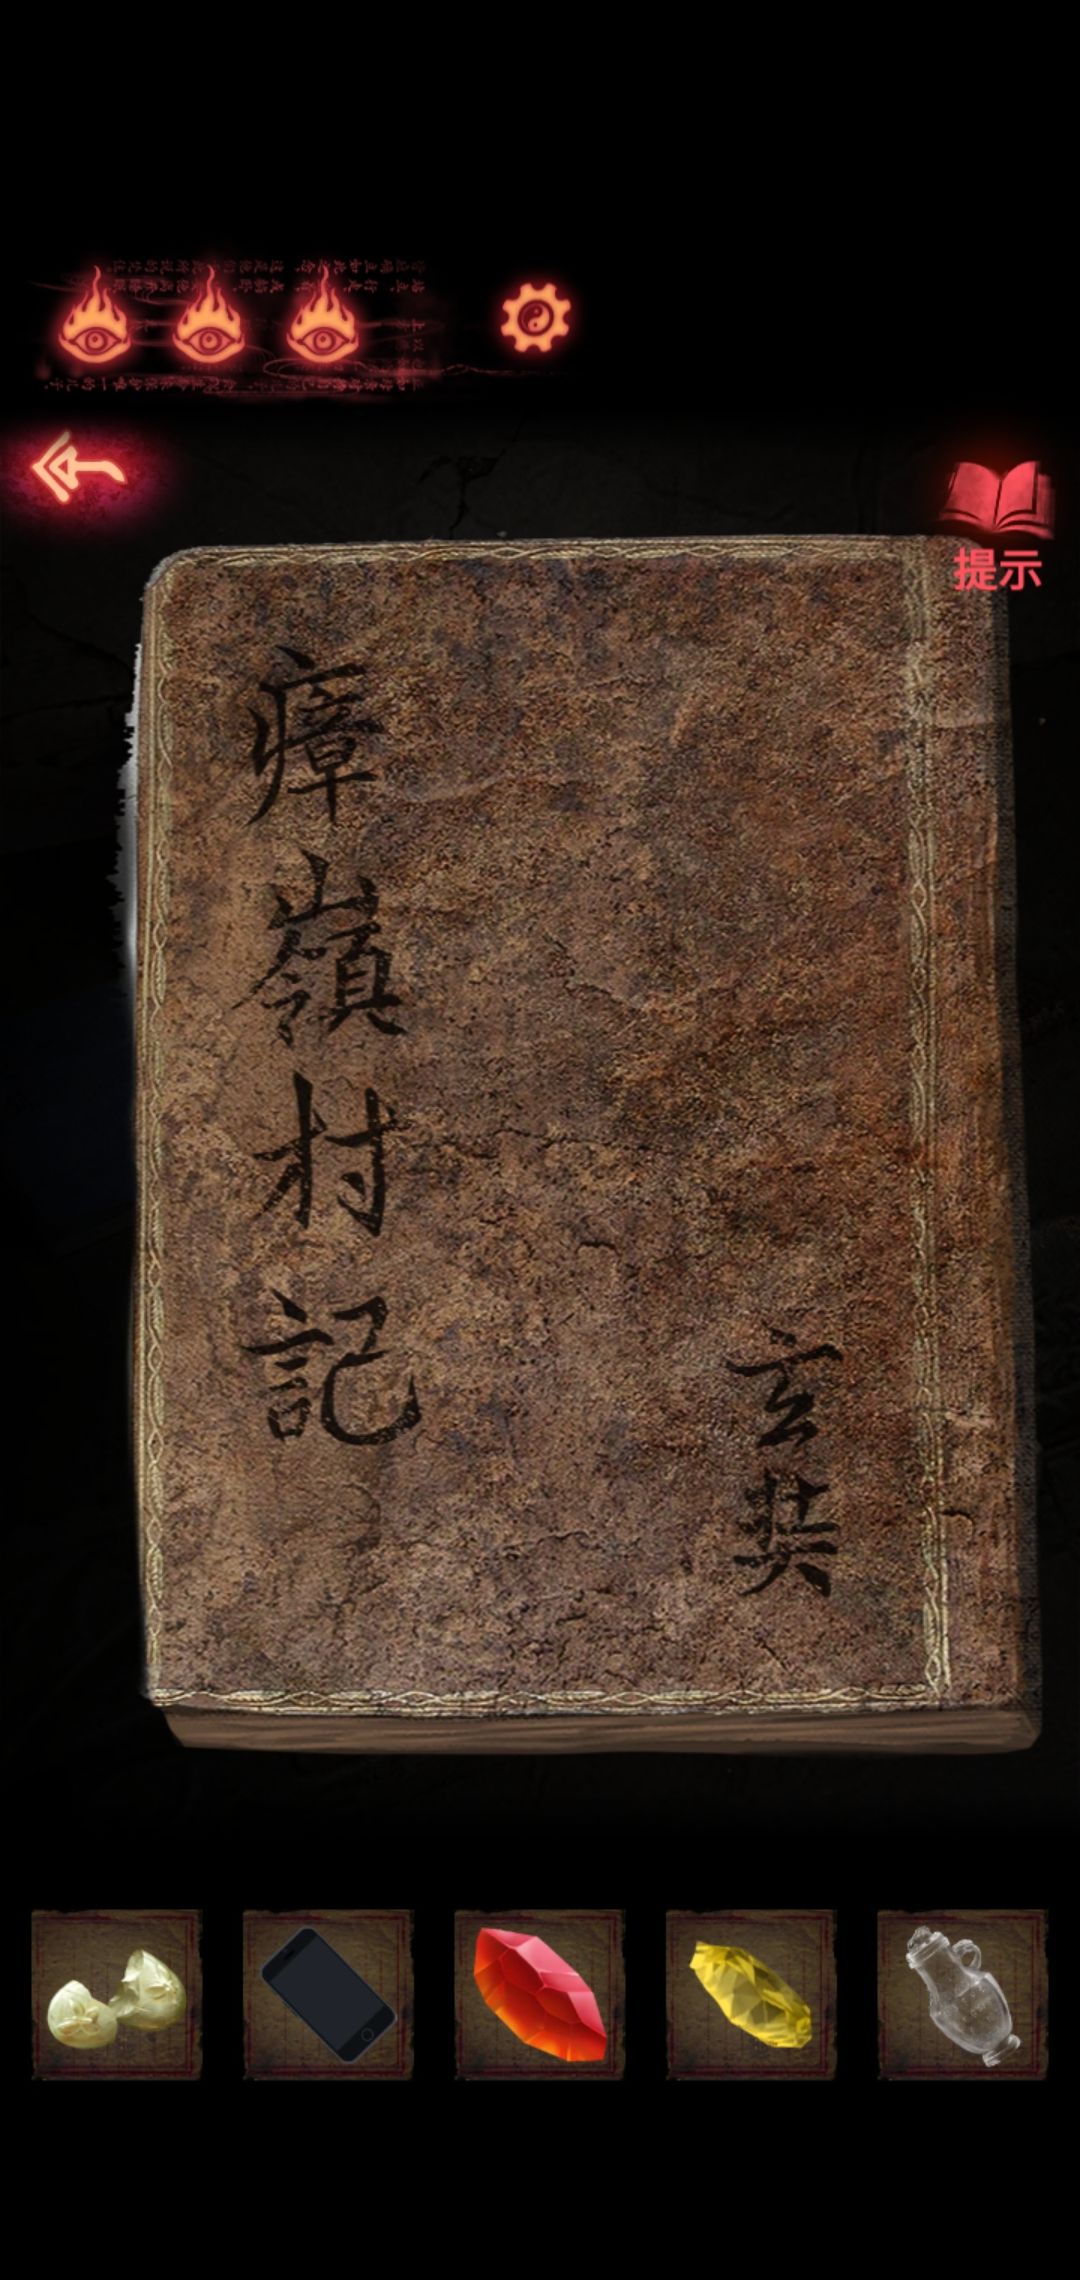 提示
瘴嶺村記
玄奘